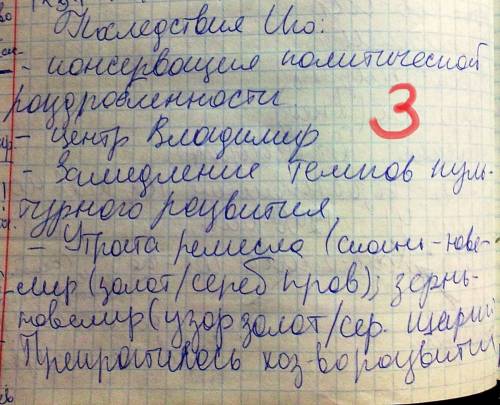 Последствия Иго:
- консервация политической
раздробленности
3
- Центр Владимир
- Замедление темпов куль-
турного развития
- Утрата ремесла (скань-юве-
лир (золот/сереб пров); зернь-
ювелир (узор золот/сер. шарик
Прекратилось хоз-во развитие